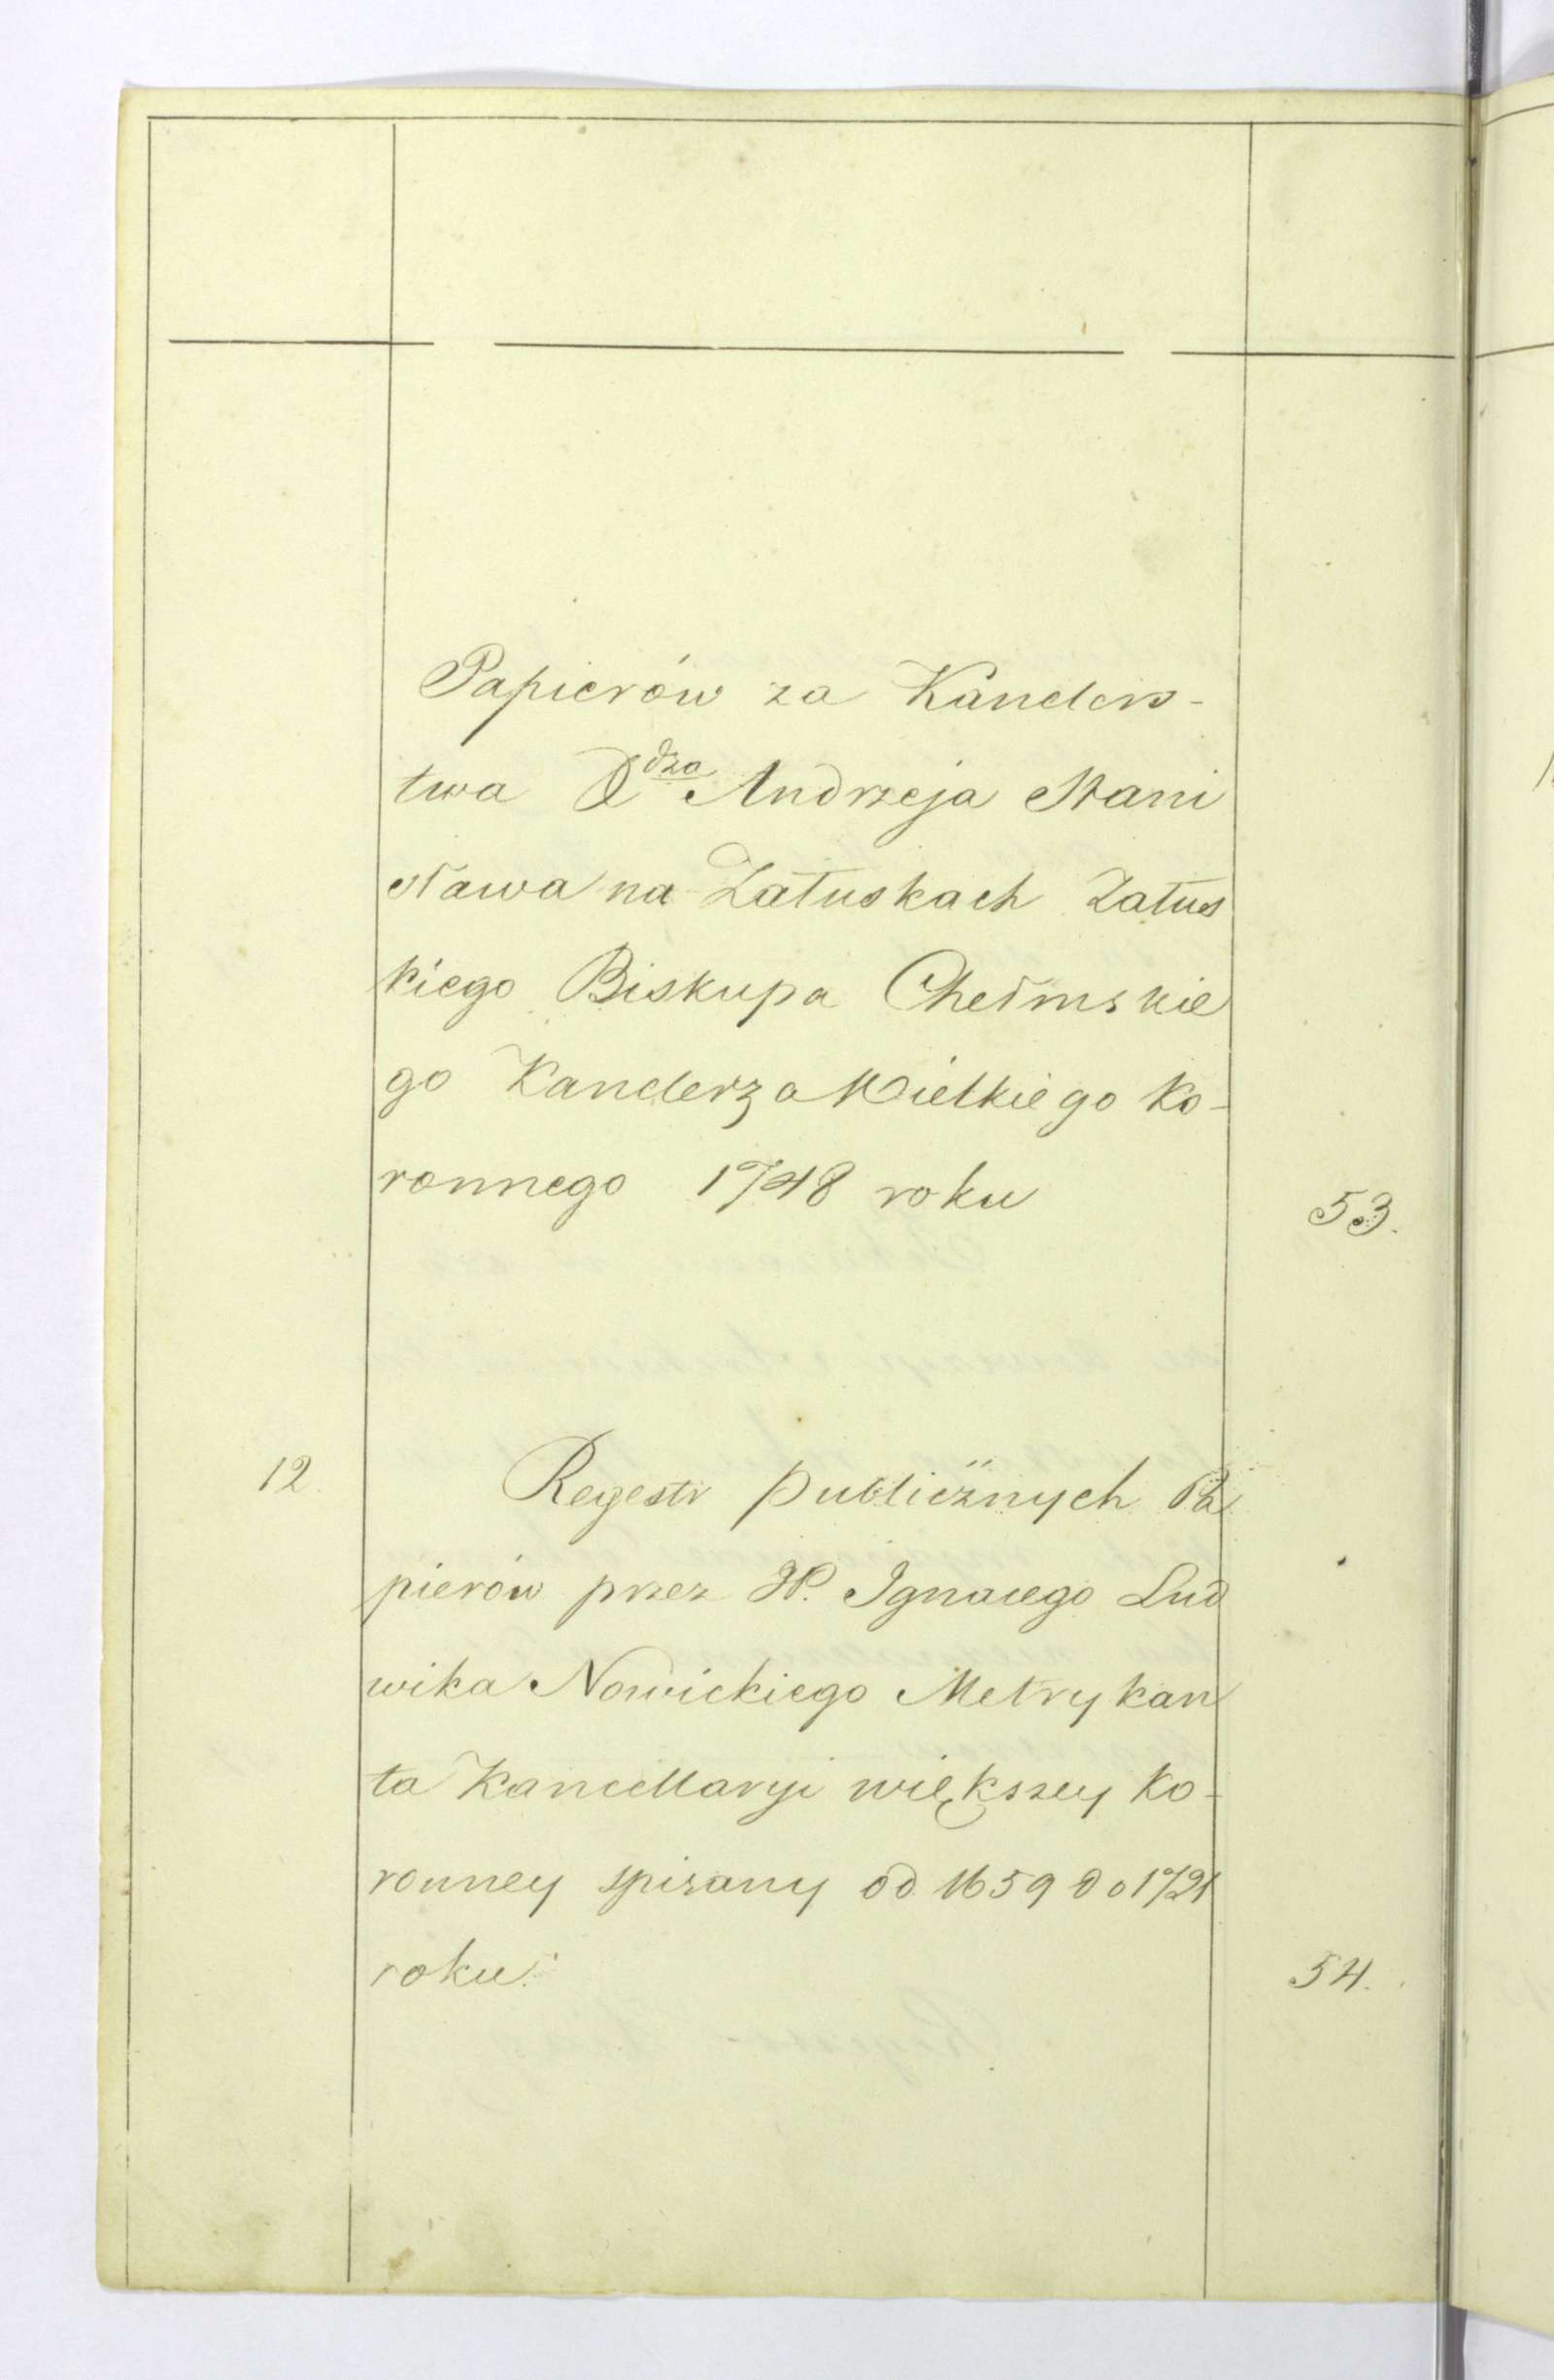 Papierów za Kanclers-
twa X dza Andrzeja Stani
sława na Załuskach Załus
kiego Biskupa Chełmskie
go Kanclerza Wielkiego Ko-
ronnego 1748 roku 53.
12. Regestr publicżnych Pa
pierów przez JP. Ignacego Lud
wika Nowickiego Metrykan
ta Kancellaryi większey Ko-
ronney spisany od 1659 do 1721
roku. 54.